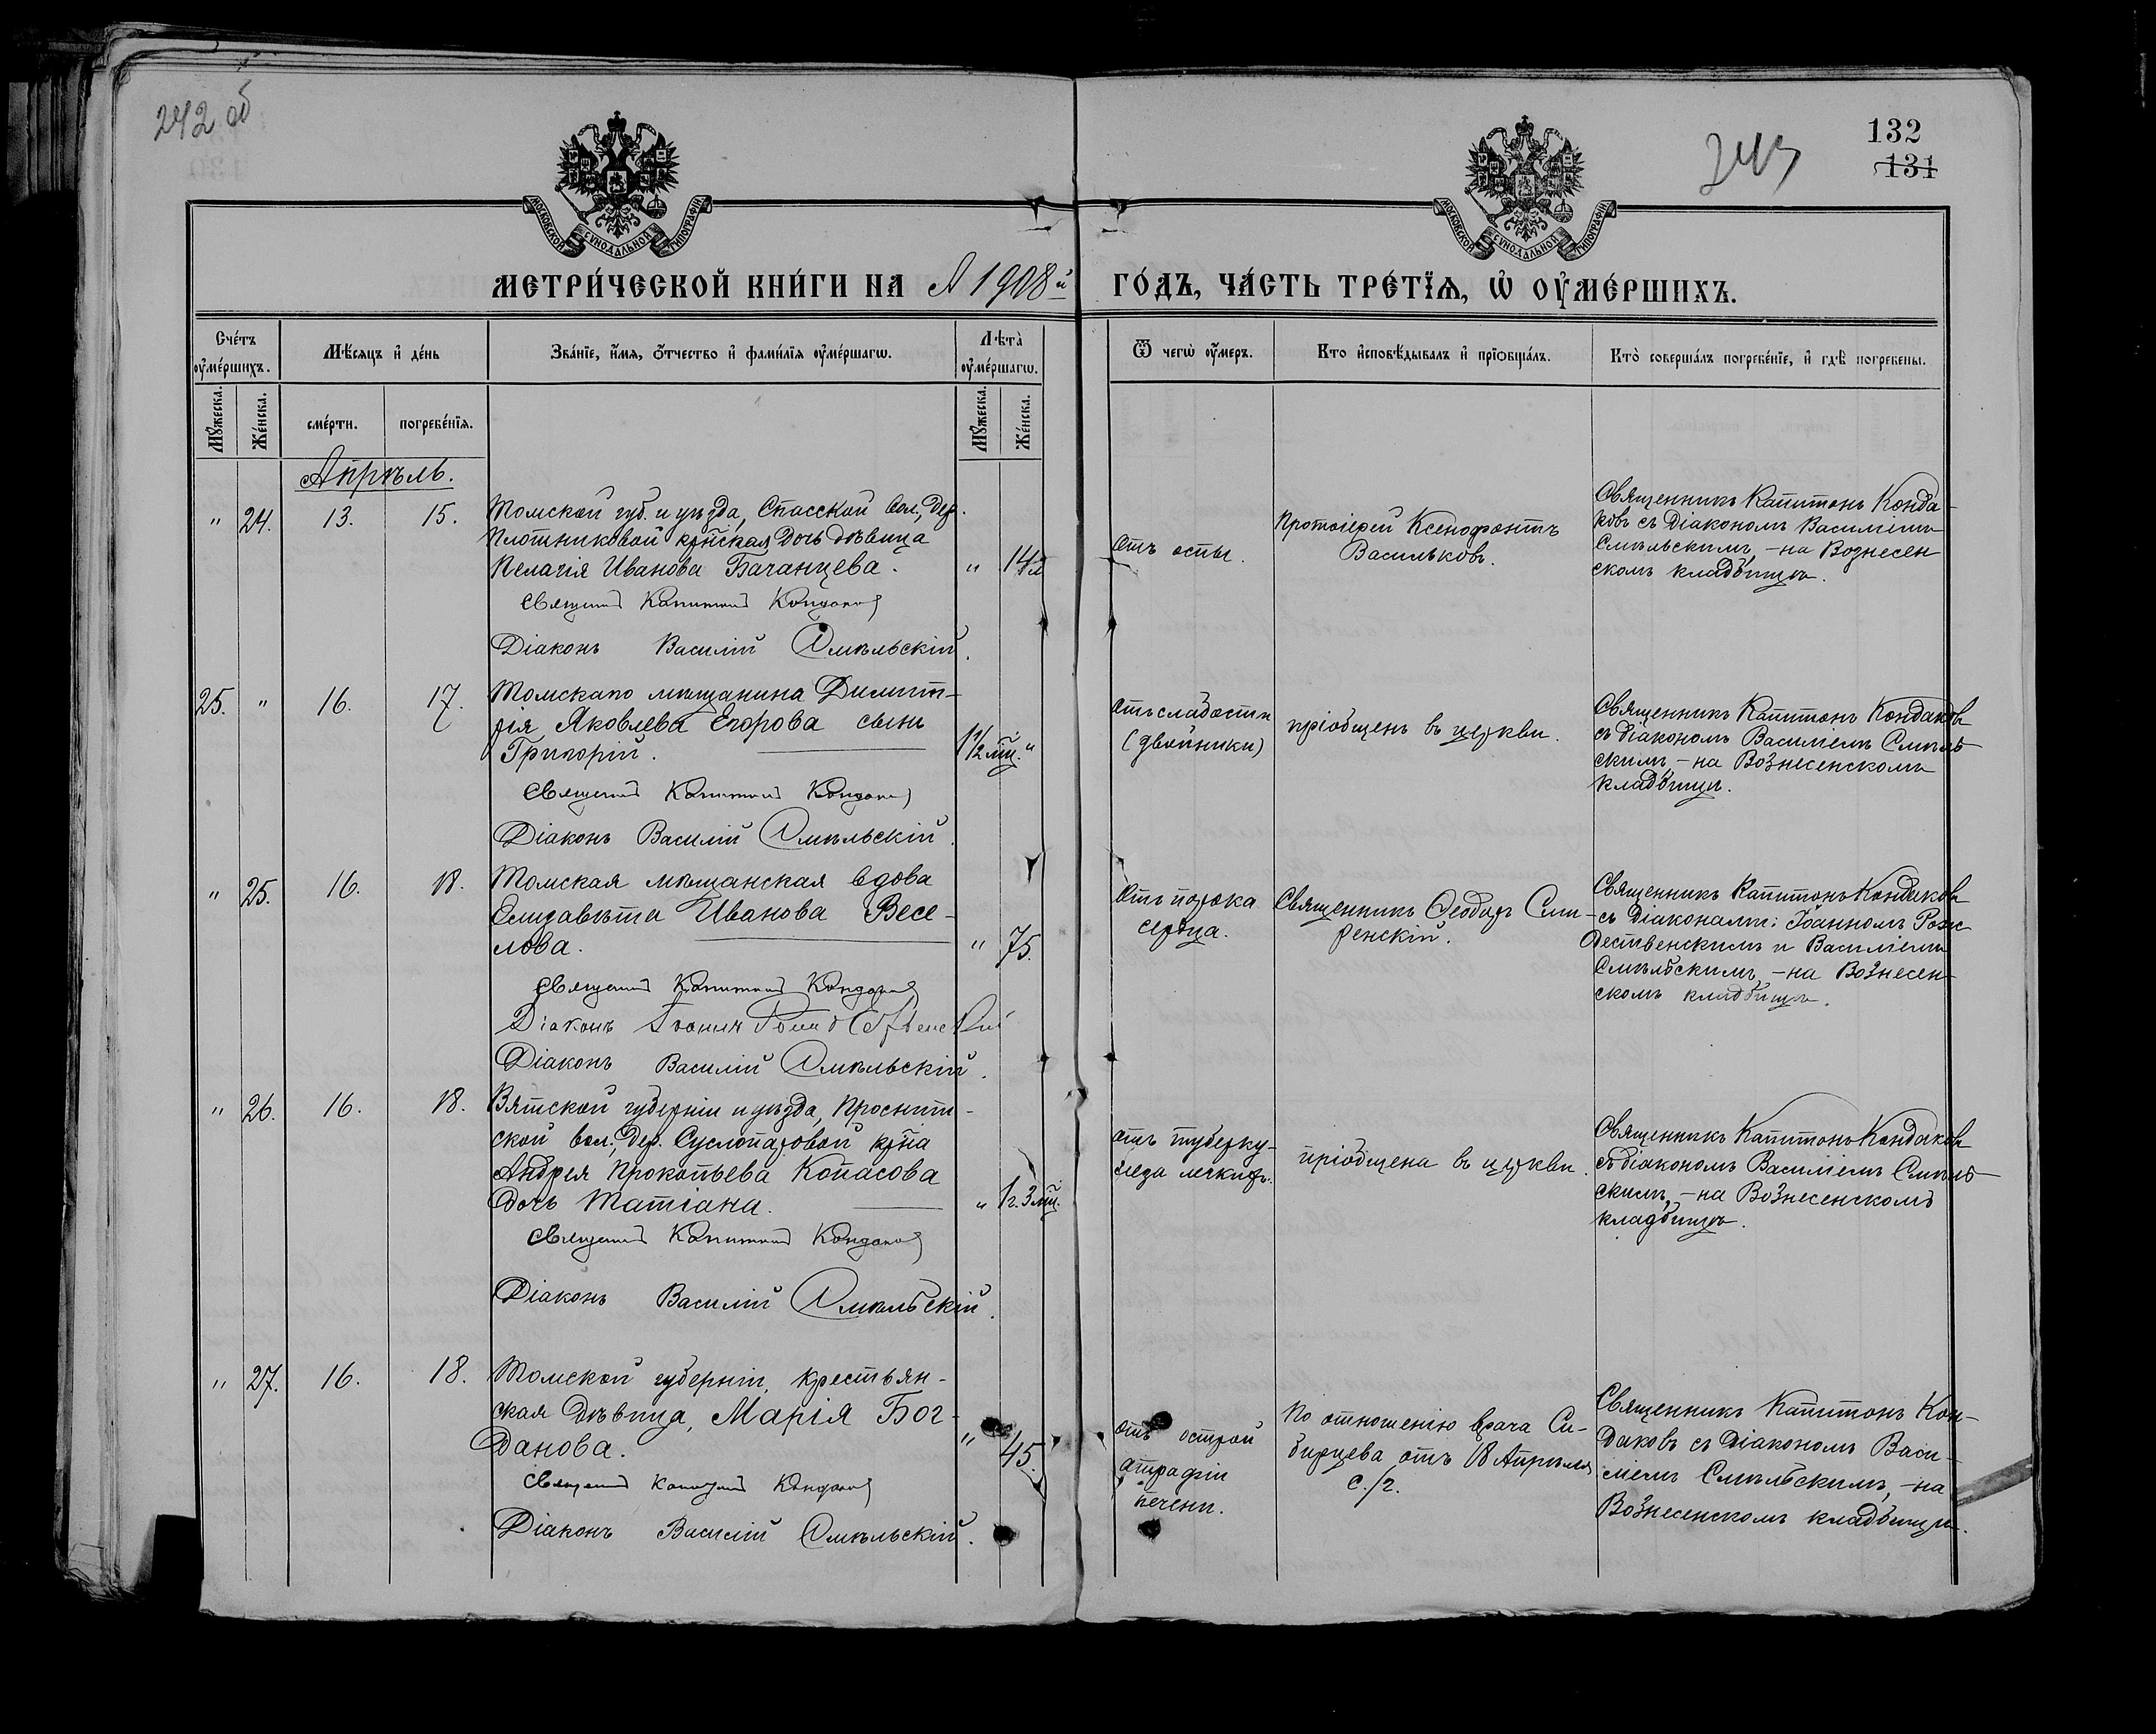 242 об
243
132
131
МОСКОВСКОЙ СѴНОДАЛЬНОЙ ТИПОГРАФІИ
МОСКОВСКОЙ СѴНОДАЛЬНОЙ ТИПОГРАФІИ
МЕТРИ́ЧЕСКОЙ КНИ́ГИ НА 1908й ГО́ДЪ, ЧА́СТЬ ТРЕ́ТЇѦ, Ѡ҆ ОУ҆МЕ́РШИХЪ.
Сче́тъ
оу҆ме́ршихъ.
Мѣ́сѧцъ и҆ де́нь
Зва́нїе, и҆́мѧ, о҆́тчество и҆ фами́лїѧ оу҆ме́ршагѡ.
Лѣта̀
оу҆ме́ршагѡ.
Ѿ чегѡ̀ оу҆́меръ.
Кто и҆сповѣ́дывалъ и҆ прїѡбща́лъ.
Кто̀ соверша́лъ погребе́нїе, и҆ гдѣ̀ погребены.
Мꙋ́жеска.
Же́нска.
сме́рти.
погребе́нїѧ.
Мꙋ́жеска.
Же́нска.
Апрѣль.
" 24. 13. 15.
Томской губ. и уѣзда, Спасской вол., дер.
Плотниковой кр̃нская дочь дѣвица
Пелагія Иванова Бачанцева.
" 14 л
Священник Капитон Кондаков
Діаконъ Василій Смѣльскій.
отъ оспы.
Протоіерей Ксенофонтъ
Васильковъ.
Священникъ Капитонъ Конда-
ковъ съ діакономъ Василіемъ
Смѣльскимъ, - на Вознесен
скомъ кладбищѣ.
25. " 16. 17.
Томскаго мѣщанина Димит-
рія Яковлева Егорова сынъ
Григорій.
1½ мц. "
Священник Капитон Кондаков
Діаконъ Василій Смѣльскій.
отъ слабости
(двойники)
пріобщенъ въ церкви.
Священникъ Капитонъ Кондаковъ
съ діакономъ Василіемъ Смѣль
скимъ, - на Вознесенскомъ
кладбищѣ.
" 25. 16. 18.
Томская мѣщанская вдова
Елизавета Иванова Весе-
лова.
" 75.
Священник Капитон Кондаков
Діаконъ Іоаннъ Рождественскій
Діаконъ Василій Смѣльскій.
отъ порока
сердца.
Священникъ Ѳеодоръ Сми-
ренскій.
Священникъ Капитонъ Кондаковъ
съ діаконами: Іоанномъ Рож
дественскимъ и Василіемъ
Смѣльскимъ, - на Вознесен-
скомъ кладбищѣ.
" 26. 16. 18.
Вятской губерніи и уѣзда, Просниц-
ской вол., дер. Суслопаровой кр̃на
Андрея Прокопьева Копасова
дочь Татіана.
" 1 г. 3 мц.
Священник Капитон Кондаков
Діаконъ Василій Смѣльскій.
отъ туберку-
леза легкихъ.
пріобщена въ церкви.
Священникъ Капитонъ Кондаковъ
съ діакономъ Василіемъ Смѣль-
скимъ, - на Вознесенскомъ
кладбищѣ.
" 27. 16. 18.
Томской губерніи, крестьян-
ская дѣвица, Марія Бог-
данова.
" 45.
Священник Капитон Кондаков
Діаконъ Василій Смѣльскій.
отъ острой
атрафіи
печени.
По отношенію врача Си-
бирцева отъ 18 Апрѣля
с./г.
Священникъ Капитонъ Кон-
даковъ съ діакономъ Васи-
ліемъ Смѣльскимъ, - на
Вознесенскомъ кладбищѣ.